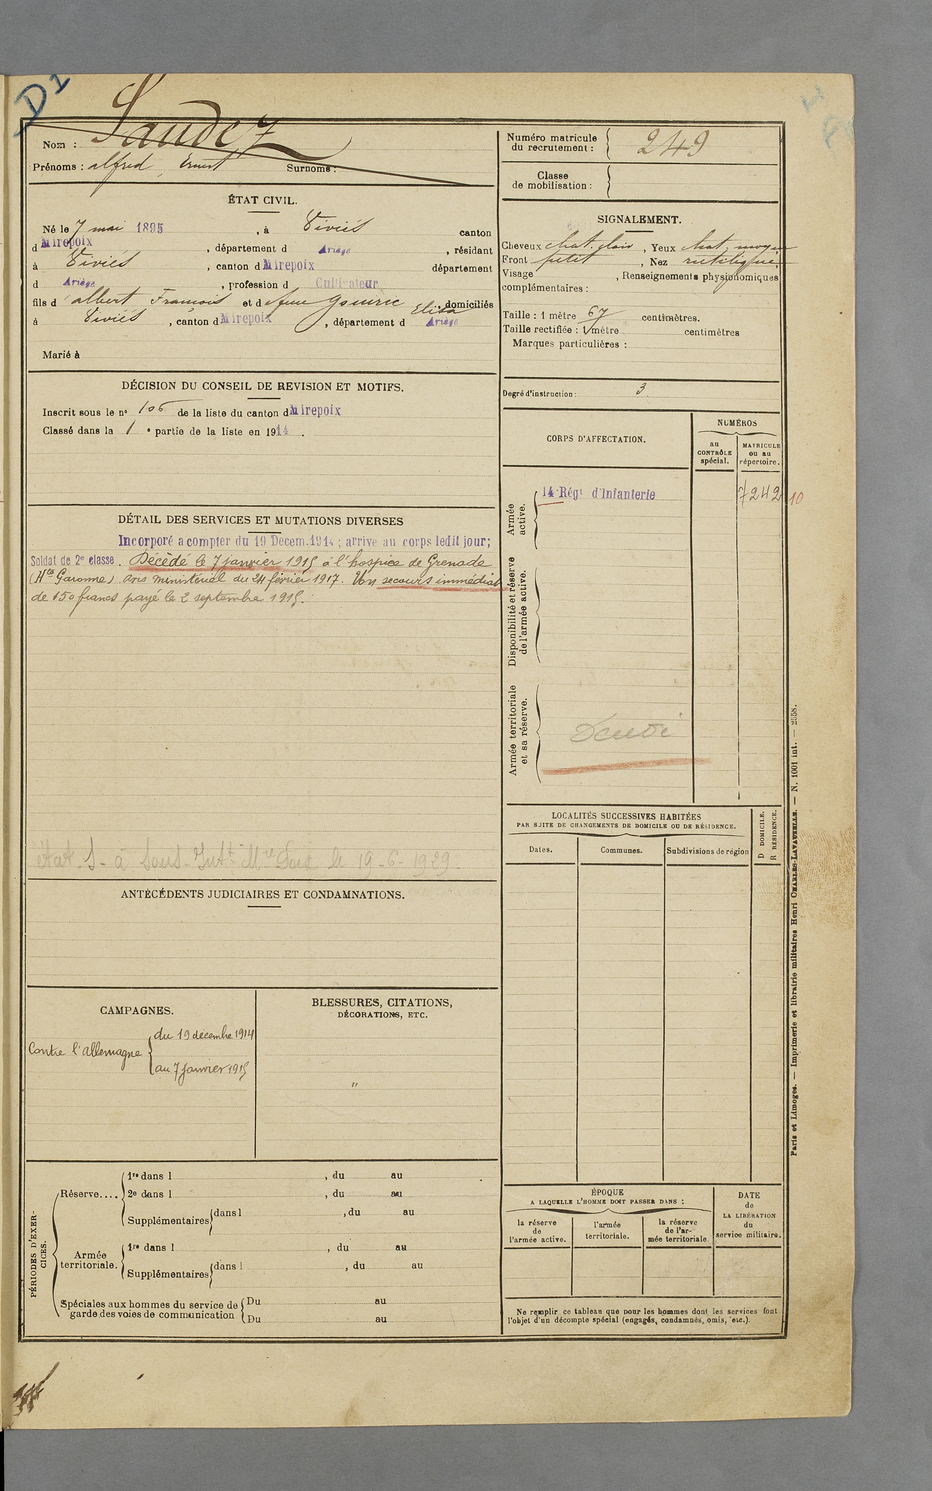 D2
Nom :
Prénoms : alfred, Ernest Surnoms :
ÉTAT CIVIL.
Né le 7 mai 1895, à Viviés canton
d Mirepoix, département d Ariège, résidant
à Viviés, canton d Mirepoix département
d Ariège, profession d Cultivateur
fils d albert François et d Elisa domiciliés
à Viviés, canton d Mirepoix, département d Ariège
Marié à
DÉCISION DU CONSEIL DE REVISION ET MOTIFS.
Inscrit sous le n° 106 de la liste du canton d Mirepoix
Classé dans la 1e partie de la liste en 1914.
DÉTAIL DES SERVICES ET MUTATIONS DIVERSES
Incorporé a compter du 19 Decem.1914; arrive au corps ledit jour;
Soldat de 2e classe. Décédé le 7 janvier 1915 à l'hospice de Grenade
(Hte Garonne) avis ministériel du 24 février 1917. Un secours immédiat
de 150 francs payé le 2 septembre 1915.
le 19-6-1939
ANTÉCÉDENTS JUDICIAIRES ET CONDAMNATIONS.
CAMPAGNES.
Contre l'Allemagne
du 19 décembre 1914
au 7 janvier 1915
BLESSURES, CITATIONS,
DÉCORATIONS, ETC.
"
PÉRIODES D'EXER-
CICES.
Réserve....
1re dans l , du au
2e dans l , du au
Supplémentaires dans l , du au
Armée
territoriale.
1re dans l , du au
Supplémentaires dans l , du au
Spéciales aux hommes du service de
garde des voies de communication
Du au
Du au
Numéro matricule
du recrutement :
249
Classe
de mobilisation :
SIGNALEMENT.
Cheveux chat. clair, Yeux chat. moyen
Front petit, Nez rectiligne
Visage , Renseignements physionomiques
complémentaires :
Taille : 1 mètre 67 centimètres.
Taille rectifiée : 1 mètre centimètres
Marques particulières :
Degré d'instruction : 3
CORPS D'AFFECTATION.
NUMÉROS
au
CONTRÔLE
spécial.
MATRICULE
ou au
répertoire.
Armée
active.
14 Régt d'Infanterie
7242
10
Disponibilité et réserve
de l'armée active.
Armée territoriale
et sa réserve.
LOCALITÉS SUCCESSIVES HABITÉES
PAR SUITE DE CHANGEMENTS DE DOMICILE OU DE RÉSIDENCE.
D DOMICILE.
R RÉSIDENCE.
Dates.
Communes.
Subdivisions de région
ÉPOQUE
A LAQUELLE L'HOMME DOIT PASSER DANS :
la réserve
de
l'armée active.
l'armée
territoriale.
la réserve
de l'ar-
mée territoriale.
DATE
de
LA LIBÉRATION
du
service militaire.
Ne remplir ce tableau que pour les hommes dont les services font
l'objet d'un décompte spécial (engagés, condamnés, omis, etc.).
Paris et Limoges. — Imprimerie et librairie militaires Henri CHARLES-LAVAUZELLE. — N. 1001 int. — 2558.